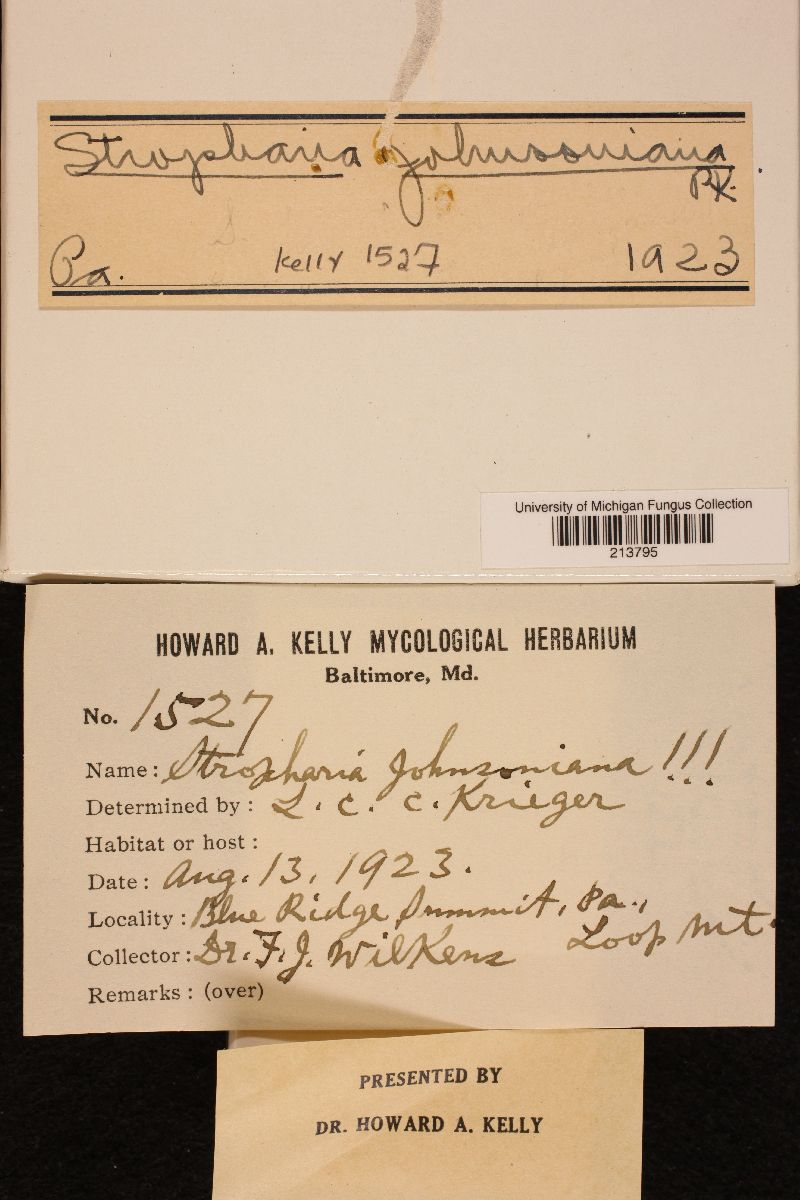 Stropharia johnsoniana
PK.
Pa. Kelly 1527 1923
University of Michigan Fungus Collection
213795
HOWARD A. KELLY MYCOLOGICAL HERBARIUM
Baltimore, Md.
No. 1527
Name: Stropharia Johnsoniana !!!
Determined by: L. C. C. Krieger
Habitat or host:
Date: Aug. 13, 1923.
Locality: Blue Ridge Summit, Pa.,
Loop Mt.
Collector: Dr. F. J. Wilkens
Remarks: (over)
PRESENTED BY
DR. HOWARD A. KELLY